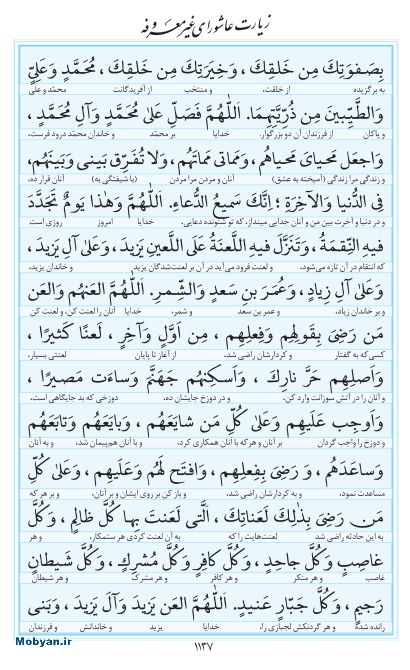 زیارت عاشورای غیر معروفه
بِصَفوَتِكَ مِن خَلقِكَ ، وَخِيَرَتِكَ مِن خَلقِكَ ، مُحَمَّدٍ وَعَلِيٍّ
به برگزیده از خلقت، و منتخب از آفریدگانت محمّد و علی
وَالطَّيِّبينَ مِن ذُرِّيَّتِهِما. اَللّٰهُمَّ فَصَلِّ عَلىٰ مُحَمَّدٍ وَآلِ مُحَمَّدٍ ،
و پاکان از فرزندان آن دو بزرگوار. خدایا بر محمّد و خاندان محمّد درود فرست،
وَاجعَل مَحيايَ مَحياهُم ، وَمَماتي مَماتَهُم ، وَلا تُفَرِّق بَيني وَبَينَهُم،
و زندگی مرا زندگی (آمیخته به عشق) آنان و مردن مرا مردن (با شیفتگی به) آنان قرار ده،
فِي الدُّنيا وَالآخِرَةِ ؛ اِنَّكَ سَميعُ الدُّعاءِ. اَللّٰهُمَّ وَهٰذا يَومٌ تَجَدَّدَ
و در دنیا و آخرت بین من و آنان جدایی مینداز، که تو شنونده دعایی. خدایا امروز روزی است
فيهِ النِّقمَةُ ، وَتَنَزَّلَ فيهِ اللَّعنَةُ عَلَى اللَّعينِ يَزيدَ ، وَعَلىٰ آلِ يَزيدَ،
که انتقام در آن تازه می‌شود، و لعنت فرود می‌آید در آن بر لعنت‌شدگان یزید، و خاندان یزید،
وَعَلىٰ آلِ زِيادٍ ، وَعُمَرَ بنِ سَعدٍ وَالشِّمرِ. اَللّٰهُمَّ العَنهُم وَالعَن
بر خاندان زیاد، و عمر بن سعد و شمر، خدایا آنان را لعنت کن، و لعنت کن
مَن رَضِيَ بِقَولِهِم وَفِعلِهِم ، مِن اَوَّلٍ وَآخِرٍ ، لَعنًا كَثيرًا ،
کسی که به گفتار و کردارشان راضی شد، از آغاز تا پایان لعنتی بسیار،
وَاَصلِهِم حَرَّ نارِكَ ، وَاَسكِنهُم جَهَنَّمَ وَساءَت مَصيرًا ،
و آنان را در آتش سوزانت وارد کن، و در دوزخ جایشان ده، دوزخی که بد جایگاهی است،
وَاَوجِب عَلَيهِم وَعَلىٰ كُلِّ مَن شايَعَهُم ، وَبايَعَهُم وَتابَعَهُم
و دوزخ را واجب گردان بر آنان و هرکه با آنان همکاری کرد، و با آنان هم‌پیمان شد، و به آنان
وَساعَدَهُم ، وَ رَضِيَ بِفِعلِهِم ، وَافتَح لَهُم وَعَلَيهِم ، وَعَلىٰ كُلِّ
مساعدت نمود، و به کردارشان راضی شد، و باز کن بر روی ایشان و بر آنان، و بر هر که
مَن رَضِيَ بِذٰلِكَ لَعَناتِكَ ، الَّتي لَعَنتَ بِها كُلَّ ظالِمٍ ، وَكُلَّ
به این حادثه راضی شد لعنت‌هایت را که به آن لعنت کردی هر ستمکار، و هر
غاصِبٍ وَكُلَّ جاحِدٍ، وَكُلَّ كافِرٍ وَكُلَّ مُشرِكٍ، وَكُلَّ شَيطانٍ
غاصب و هر منکر و هر کافر و هر مشرک و هر شیطان
رَجيمٍ ، وَكُلَّ جَبّارٍ عَنيدٍ. اَللّٰهُمَّ العَن يَزيدَ وَآلَ يَزيدَ ، وَبَني
رانده شده و هر گردنکش لجبازی را، خدایا یزید و خاندانش و فرزندان
۱۱۳۷
Mobyan.ir